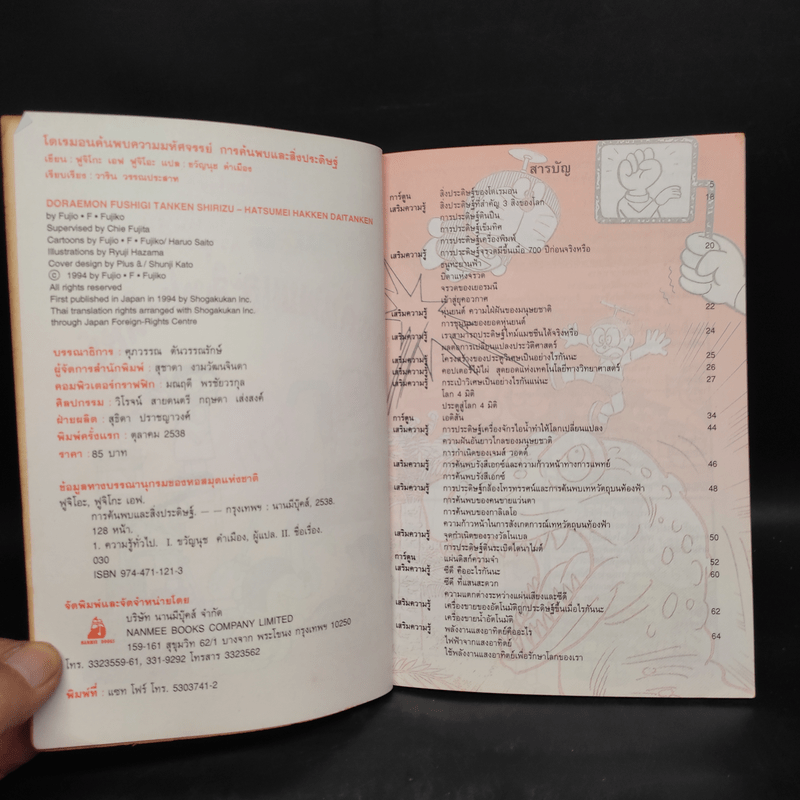 โดเรมอนค้นพบความมหัศจรรย์ การค้นพบและสิ่งประดิษฐ์
เขียน : ฟูจิโกะ เอฟ ฟูจิโอะ แปล : ขวัญนุช คำเมือง
เรียบเรียง : วาริน วรรณประสาท
DORAEMON FUSHIGI TANKEN SHIRIZU – HATSUMEI HAKKEN DAITANKEN
by Fujio • F • Fujiko
Supervised by Chie Fujita
Cartoons by Fujio • F • Fujiko/ Haruo Saito
Illustrations by Ryuji Hazama
Cover design by Plus & / Shunji Kato
© 1994 by Fujio • F • Fujiko
All rights reserved
First published in Japan in 1994 by Shogakukan Inc.
Thai translation rights arranged with Shogakukan Inc.
through Japan Foreign-Rights Centre
บรรณาธิการ : ศุภวรรณ ตันวรรณรักษ์
ผู้จัดการสำนักพิมพ์ : สุชาดา งามวัฒนจินดา
คอมพิวเตอร์กราฟฟิก : มณฤดี พรชัยวรกุล
ศิลปกรรม : วิโรจน์ สายดนตรี กฤษดา เส่งสงค์
ฝ่ายผลิต : สุธิดา ปราชญาวงศ์
พิมพ์ครั้งแรก : ตุลาคม 2538
ราคา : 85 บาท
ข้อมูลทางบรรณานุกรมของหอสมุดแห่งชาติ
ฟูจิโอะ, ฟูจิโกะ เอฟ.
การค้นพบและสิ่งประดิษฐ์. — กรุงเทพฯ : นานมีบุ๊คส์, 2538.
128 หน้า.
1. ความรู้ทั่วไป. I. ขวัญนุช คำเมือง, ผู้แปล. II. ชื่อเรื่อง.
030
ISBN 974-471-121-3
จัดพิมพ์และจัดจำหน่ายโดย
บริษัท นานมีบุ๊คส์ จำกัด
NANMEE BOOKS COMPANY LIMITED
159-161 สุขุมวิท 62/1 บางจาก พระโขนง กรุงเทพฯ 10250
โทร. 3323559-61, 331-9292 โทรสาร 3323562
NANMEE BOOKS
พิมพ์ที่ : แซท โฟร์ โทร. 5303741-2
สารบัญ
การ์ตูน สิ่งประดิษฐ์ของโดเรมอน 5
เสริมความรู้ สิ่งประดิษฐ์ที่สำคัญ 3 สิ่งของโลก 18
การประดิษฐ์ดินปืน
การประดิษฐ์เข็มทิศ
การประดิษฐ์เครื่องพิมพ์
เสริมความรู้ การประดิษฐ์จรวดมีขึ้นเมื่อ 700 ปีก่อนจริงหรือ 20
ธนูทะยานฟ้า
บิดาแห่งจรวด
จรวดของเยอรมนี
เข้าสู่ยุคอวกาศ
เสริมความรู้ หุ่นยนต์ ความใฝ่ฝันของมนุษยชาติ 22
การชุมนุมของยอดหุ่นยนต์
เสริมความรู้ เราสามารถประดิษฐ์ไทม์แมชชีนได้จริงหรือ 24
ผลต่อการเปลี่ยนแปลงประวัติศาสตร์
เสริมความรู้ โครงสร้างของประตูวิเศษเป็นอย่างไรกันนะ 25
เสริมความรู้ คอปเตอร์ไม้ไผ่ สุดยอดแห่งเทคโนโลยีทางวิทยาศาสตร์ 26
เสริมความรู้ กระเป๋าวิเศษเป็นอย่างไรกันแน่นะ 27
โลก 4 มิติ
ประตูสู่โลก 4 มิติ
การ์ตูน เอดิสัน 34
เสริมความรู้ การประดิษฐ์เครื่องจักรไอน้ำทำให้โลกเปลี่ยนแปลง 44
ความฝันอันยาวไกลของมนุษยชาติ
การกำเนิดของเจมส์ วอตต์
เสริมความรู้ การค้นพบรังสีเอกซ์และความก้าวหน้าทางการแพทย์ 46
การค้นพบรังสีเอกซ์
เสริมความรู้ การประดิษฐ์กล้องโทรทรรศน์และการค้นพบเทหวัตถุบนท้องฟ้า 48
การค้นพบของคนขายแว่นตา
การค้นพบของกาลิเลโอ
ความก้าวหน้าในการสังเกตการณ์เทหวัตถุบนท้องฟ้า
เสริมความรู้ จุดกำเนิดของรางวัลโนเบล 50
การประดิษฐ์ดินระเบิดไดนาไมต์
การ์ตูน แผ่นดิสก์ความจำ 52
เสริมความรู้ ซีดี คืออะไรกันนะ 60
ซีดี ที่แสนสะดวก
ความแตกต่างระหว่างแผ่นเสียงและซีดี
เสริมความรู้ เครื่องขายของอัตโนมัติถูกประดิษฐ์ขึ้นเมื่อไรกันนะ 62
เครื่องขายน้ำอัตโนมัติ
เสริมความรู้ พลังงานแสงอาทิตย์คืออะไร 64
ไฟฟ้าจากแสงอาทิตย์
ใช้พลังงานแสงอาทิตย์เพื่อรักษาโลกของเรา